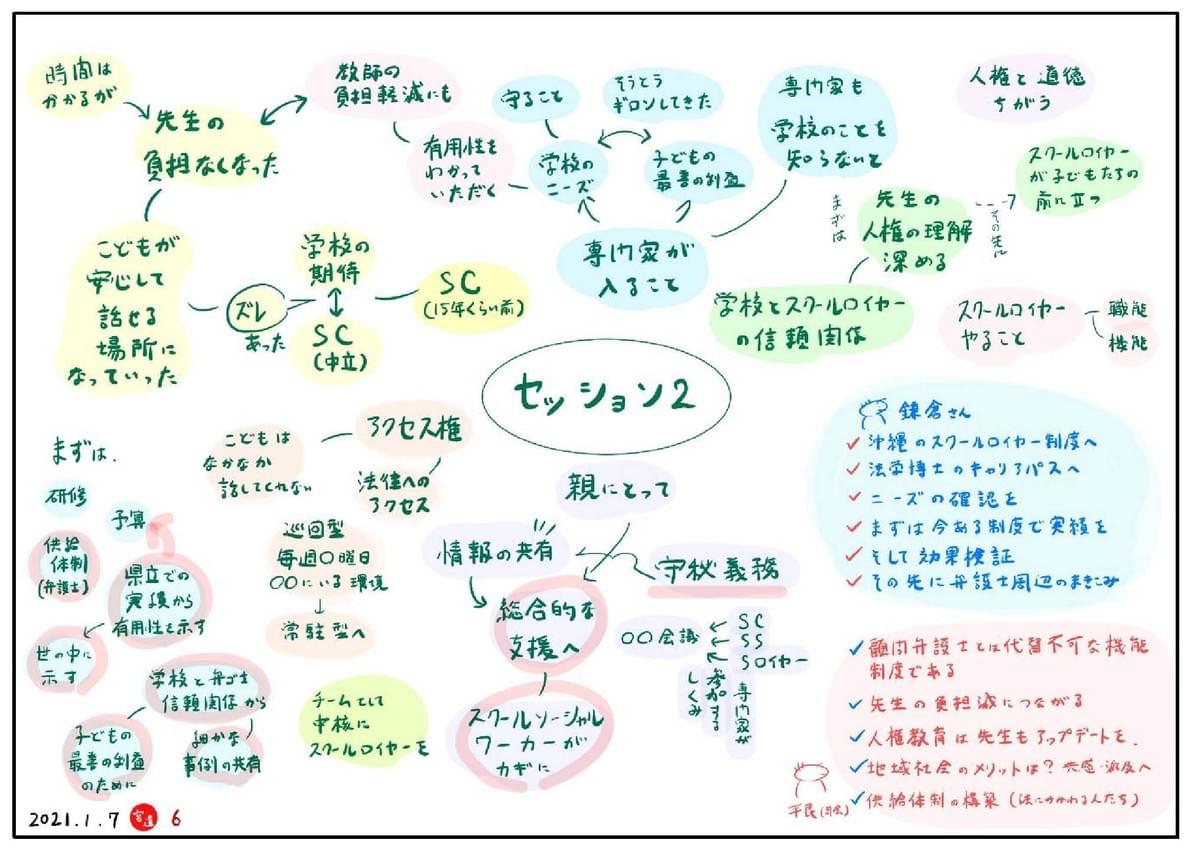 時間は
かかるが
先生の
負担なくなった
教師の
負担軽減にも
有用性を
わかって
いただく
守ること
そうとう
ギロンしてきた
学校の
ニーズ
子どもの
最善の利益
専門家が
入ること
専門家も
学校のことを
知らないと
人権と道徳
ちがう
スクールロイヤー
が子どもたちの
前に立つ
その先に
まずは
先生の
人権の理解
深める
学校とスクールロイヤー
の信頼関係
スクールロイヤー
やること
職能
機能
こどもが
安心して
話せる
場所に
なっていった
ズレ
あった
学校の
期待
SC
(中立)
SC
(15年くらい前)
セッション2
まずは、
研修
予算
供給
体制
(弁護士)
県立での
実績から
有用性を示す
世の中に
示す
学校と弁ゴ士
信頼関係から
子どもの
最善の利益
のために
細かな
事例の共有
こどもは
なかなか
話してくれない
アクセス権
法律への
アクセス
巡回型
毎週〇曜日
〇〇にいる環境
常駐型へ
チームとして
中核に
スクールロイヤーを
親にとって
情報の共有
守秘義務
総合的な
支援へ
スクールソーシャル
ワーカーが
カギに
〇〇会議
SC
SS
Sロイヤー
専門家が
参加する
しくみ
鎌倉さん
沖縄のスクールロイヤー制度へ
法学博士のキャリアパスへ
ニーズの確認を
まずは今ある制度で実績を
そして効果検証
その先に弁護士周辺のまきこみ
顧問弁護士とは代替不可な機能
制度である
先生の負担減につながる
人権教育は先生もアップデートを、
地域社会のメリットは？共感・波及へ
供給体制の構築(法にかかわる人たち)
平民
2021.1.7
6